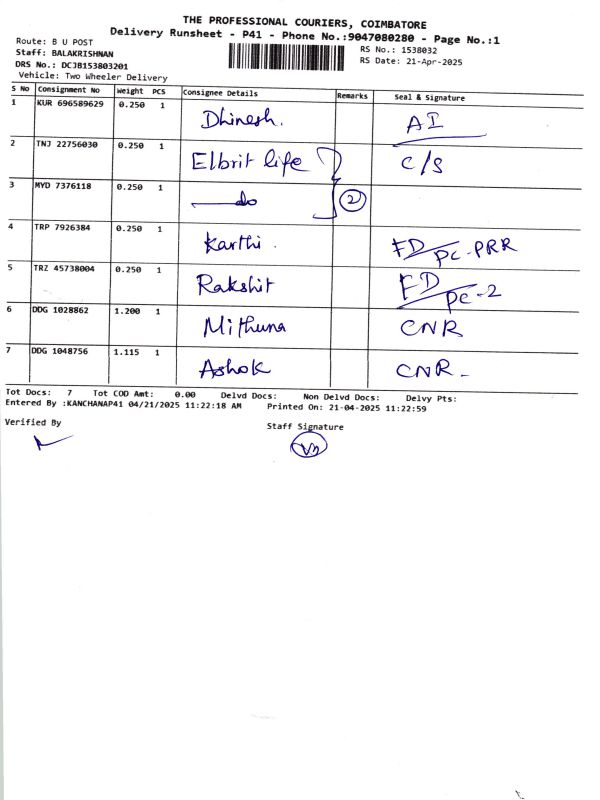 THE PROFESSIONAL COURIERS, COIMBATORE
Delivery Runsheet - P41 - Phone No.:9047080280 - Page No.:1
Route: B U POST
Staff: BALAKRISHNAN
DRS No.: DCJB153803201
Vehicle: Two Wheeler Delivery
RS No.: 1538032
RS Date: 21-Apr-2025
S No Consignment No Weight PCS Consignee Details Remarks Seal & Signature
1 KUR 696589629 0.250 1 Dhinesh. AI
2 TNJ 22756030 0.250 1 Elbrit life C/S
3 MYD 7376118 0.250 1 do 2
4 TRP 7926384 0.250 1 Karthi. FD/PC-PRR
5 TRZ 45738004 0.250 1 Rakshit FD/PC-2
6 DDG 1028862 1.200 1 Mithuna CNR
7 DDG 1048756 1.115 1 Ashok CNR -
Tot Docs: 7 Tot COD Amt: 0.00 Delvd Docs: Non Delvd Docs: Delvy Pts:
Entered By :KANCHANAP41 04/21/2025 11:22:18 AM Printed On: 21-04-2025 11:22:59
Verified By
Staff Signature